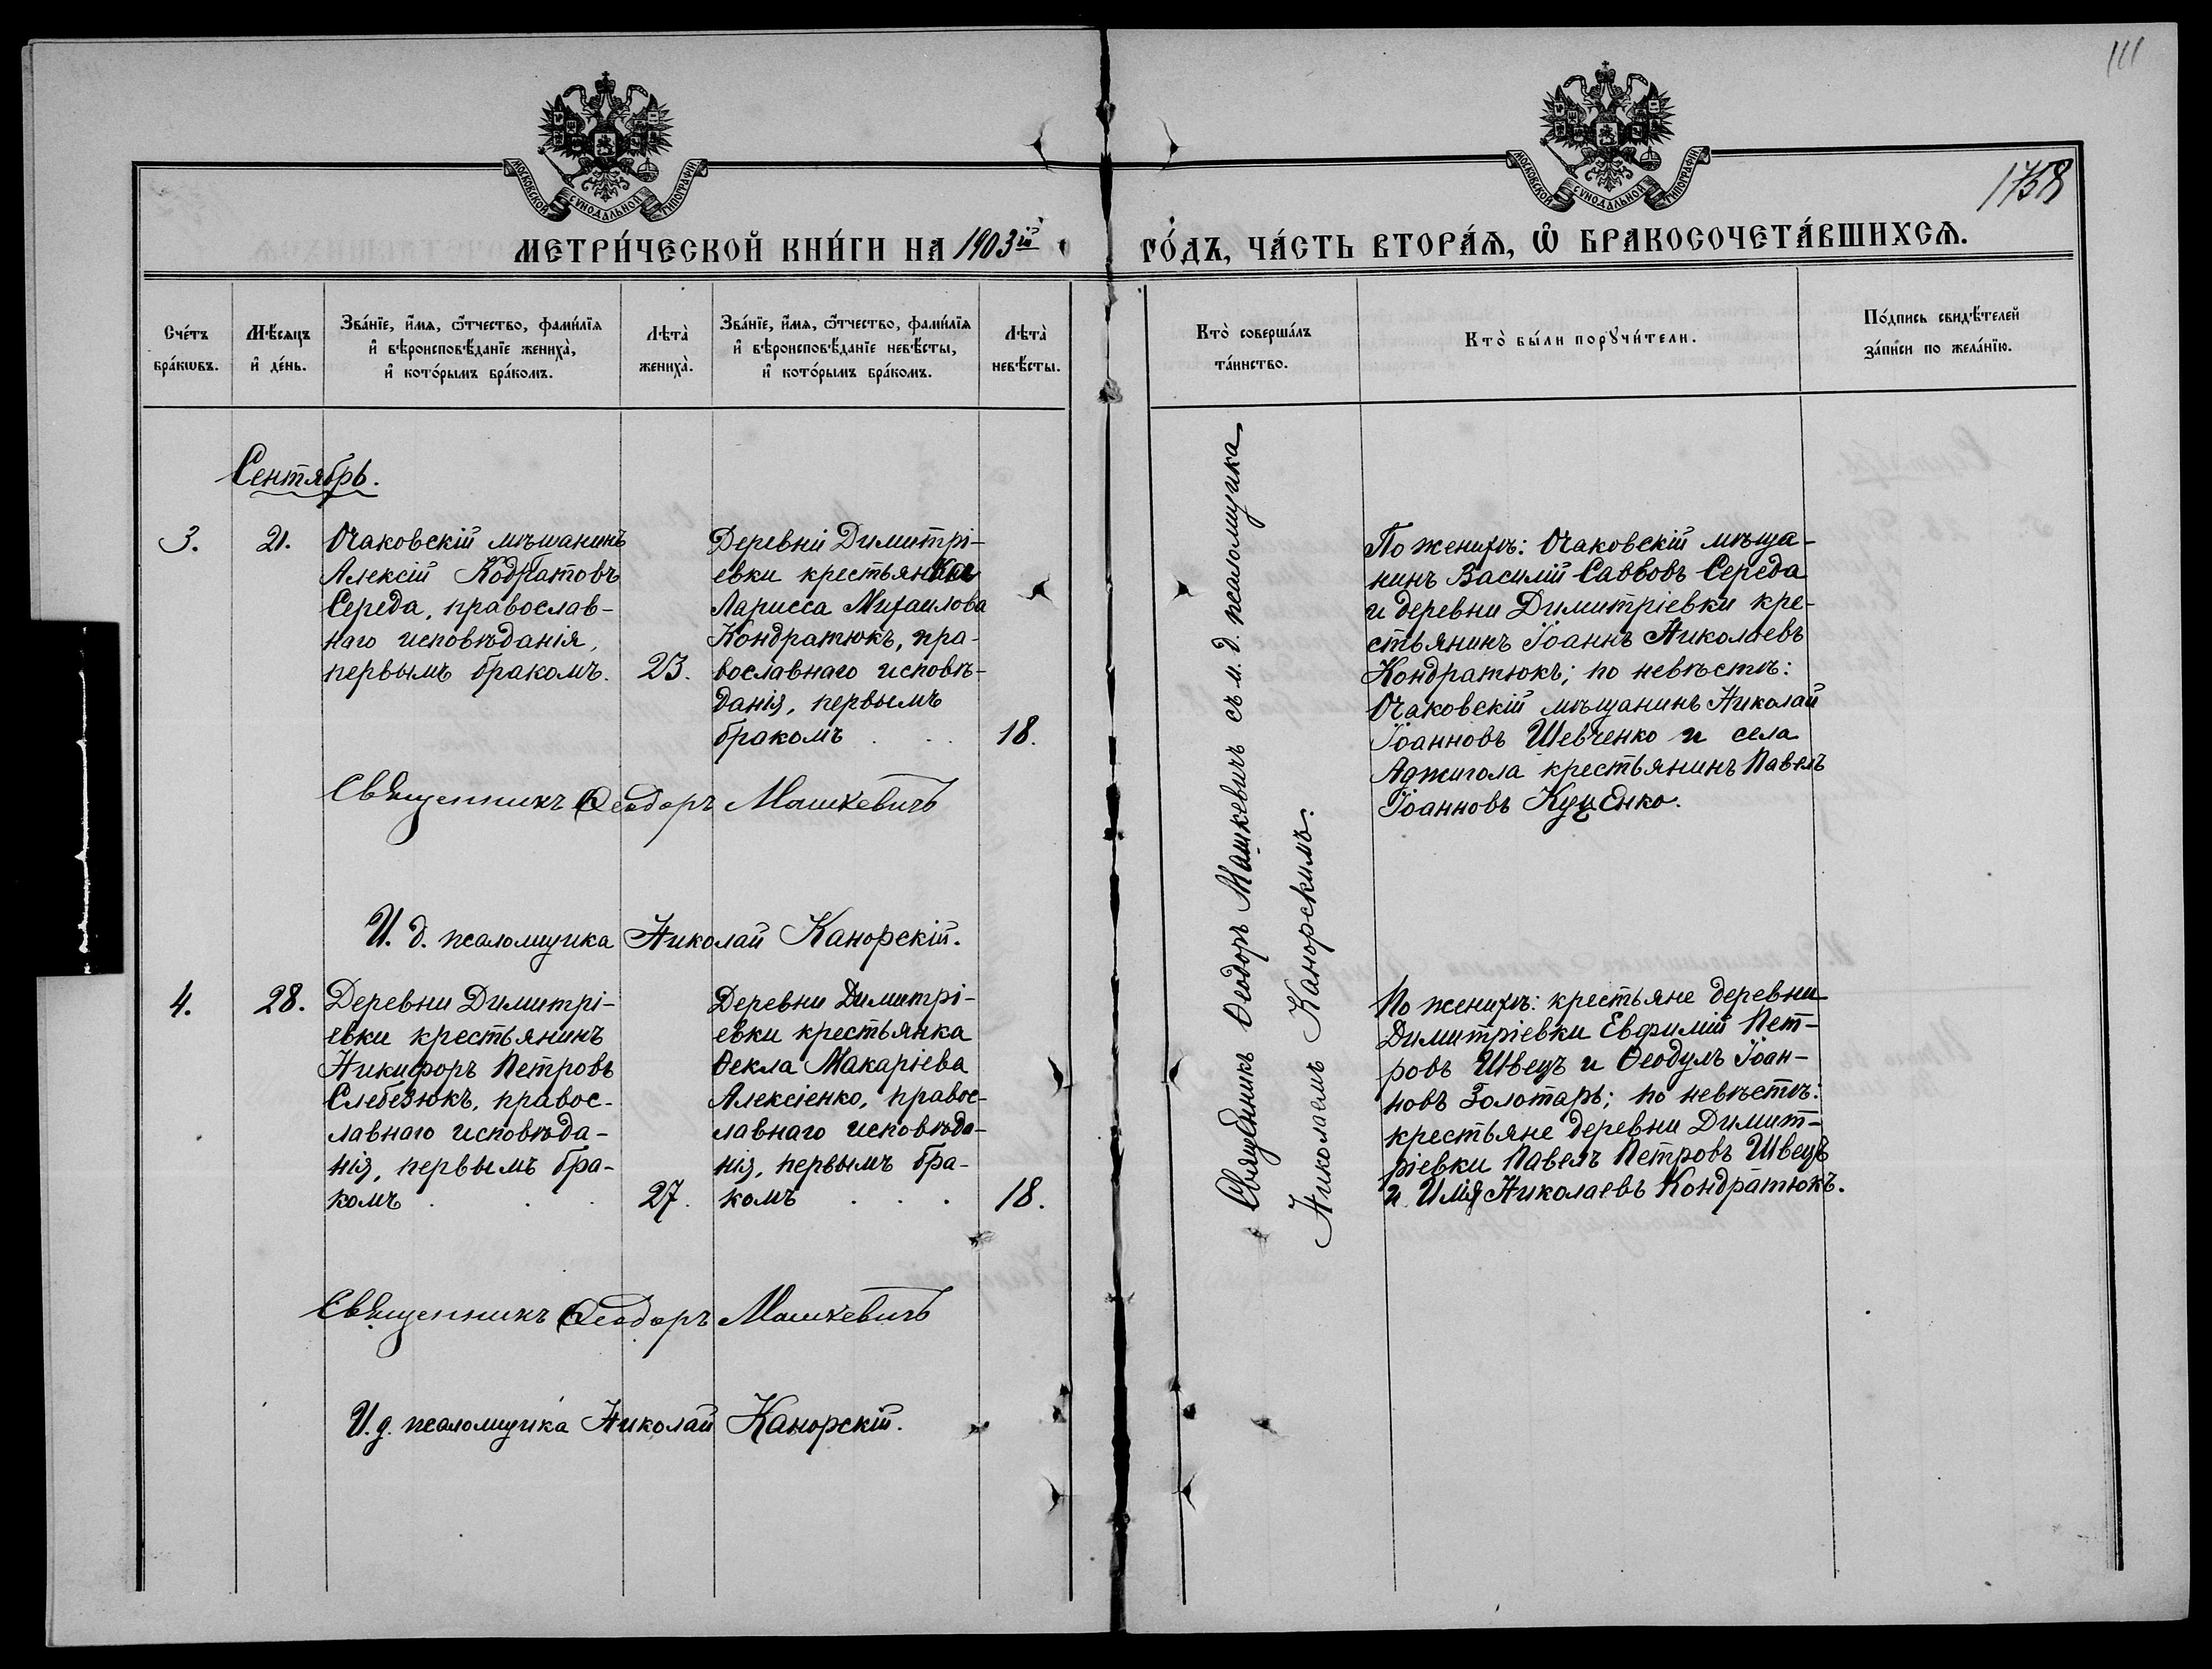 111
1758
МОСКОВСКОЙ СѴНОДАЛЬНОЙ ТИПОГРАФІИ
МОСКОВСКОЙ СѴНОДАЛЬНОЙ ТИПОГРАФІИ
МЕТРИ́ЧЕСКОЙ КНИ́ГИ НА 1903й
ГО́ДЪ, ЧА́СТЬ ВТОРА́Ѧ, Ѡ҆ БРАКОСОЧЕТА́ВШИХСѦ.
Сче́тъ
бра́кѡвъ.
Мѣ́сяцъ
и҆ де́нь.
Зва́нїе, и҆́мѧ, ѻ҆́тчество, фами́лїѧ
и҆ вѣроисповѣ́данїе жениха̀,
и҆ кото́рымъ бра́комъ.
Лѣта̀
жениха̀.
Зва́нїе, и҆́мѧ, ѻ҆́тчество, фами́лїѧ
и҆ вѣроисповѣ́данїе невѣ́сты,
и҆ кото́рымъ бра́комъ.
Лѣта̀
невѣ́сты.
Кто̀ соверша́лъ
та́инство.
Кто̀ бы́ли порꙋчи́тели.
По́дпись свидѣ́телей
за́писи по жела́нїю.
Сентябрь.
3.
21.
Очаковскій мѣщанинъ
Алексій Кодратовъ
Середа, православ-
наго исповѣданія,
первымъ бракомъ.
23.
Деревни Димитрі-
евки крестьянка
Ларисса Михаилова
Кондратюкъ, пра-
вославнаго исповѣ-
данія, первымъ
бракомъ . . .
18.
Священникъ Ѳеодоръ Машкевичъ съ и. д. псаломщика
Николаемъ Канорскимъ.
По женихѣ: Очаковскій мѣща-
нинъ Василій Саввовъ Середа
и деревни Димитріевки кре-
стьянинъ Іоаннъ Николаевъ
Кондратюкъ; по невѣстѣ:
Очаковскій мѣщанинъ Николай
Іоанновъ Шевченко и села
Аджигола крестьянинъ Павелъ
Іоанновъ Куценко.
Священникъ Ѳеодоръ Машкевичъ
И. д. псаломщика Николай Канорскій.
4.
28.
Деревни Димитрі-
евки крестьянинъ
Никифоръ Петровъ
Слебезюкъ, правос-
лавнаго исповѣда-
нія, первымъ бра-
комъ . . .
27.
Деревни Димитрі-
евки крестьянка
Ѳекла Макаріева
Алексіенко, правос-
лавнаго исповѣда-
нія, первымъ бра-
комъ . . .
18.
По женихѣ: крестьяне деревни
Димитріевки Евфимій Пет-
ровъ Швецъ и Ѳеодулъ Іоан-
новъ Золотарь; по невѣстѣ:
крестьяне деревни Димит-
ріевки Павелъ Петровъ Швецъ
и Илія Николаевъ Кондратюкъ.
Священникъ Ѳеодоръ Машкевичъ
И. д. псаломщика Николай Канорскій.